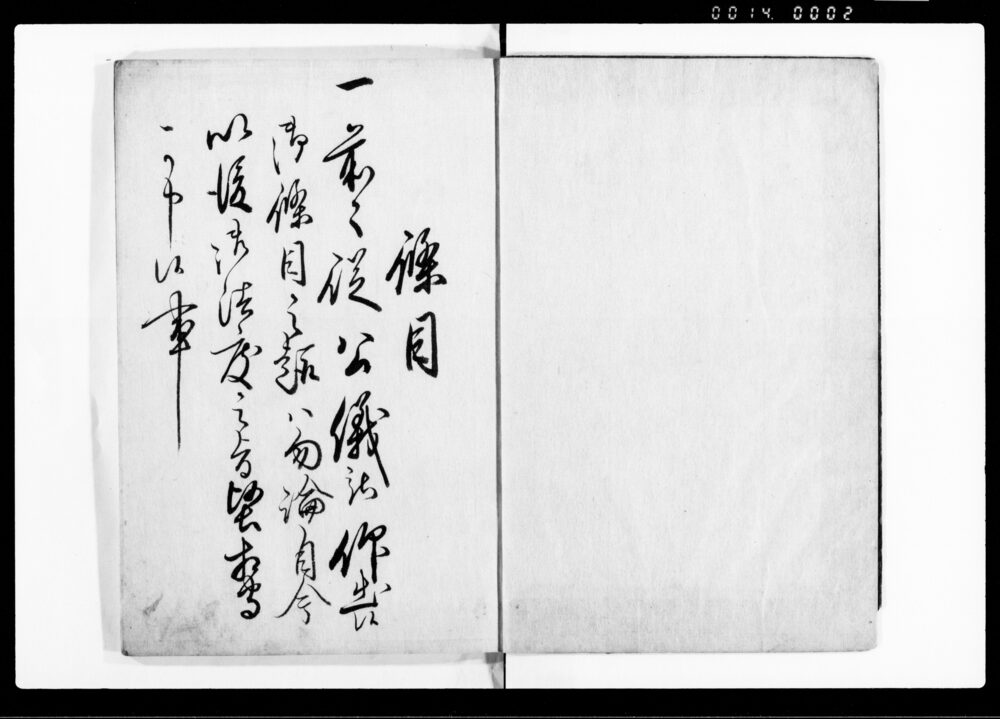 0014. 0002
條目
一 前々従公儀被仰出候
御條目之趣ハ勿論自今
以後御法度之旨堅相守
一可申候事